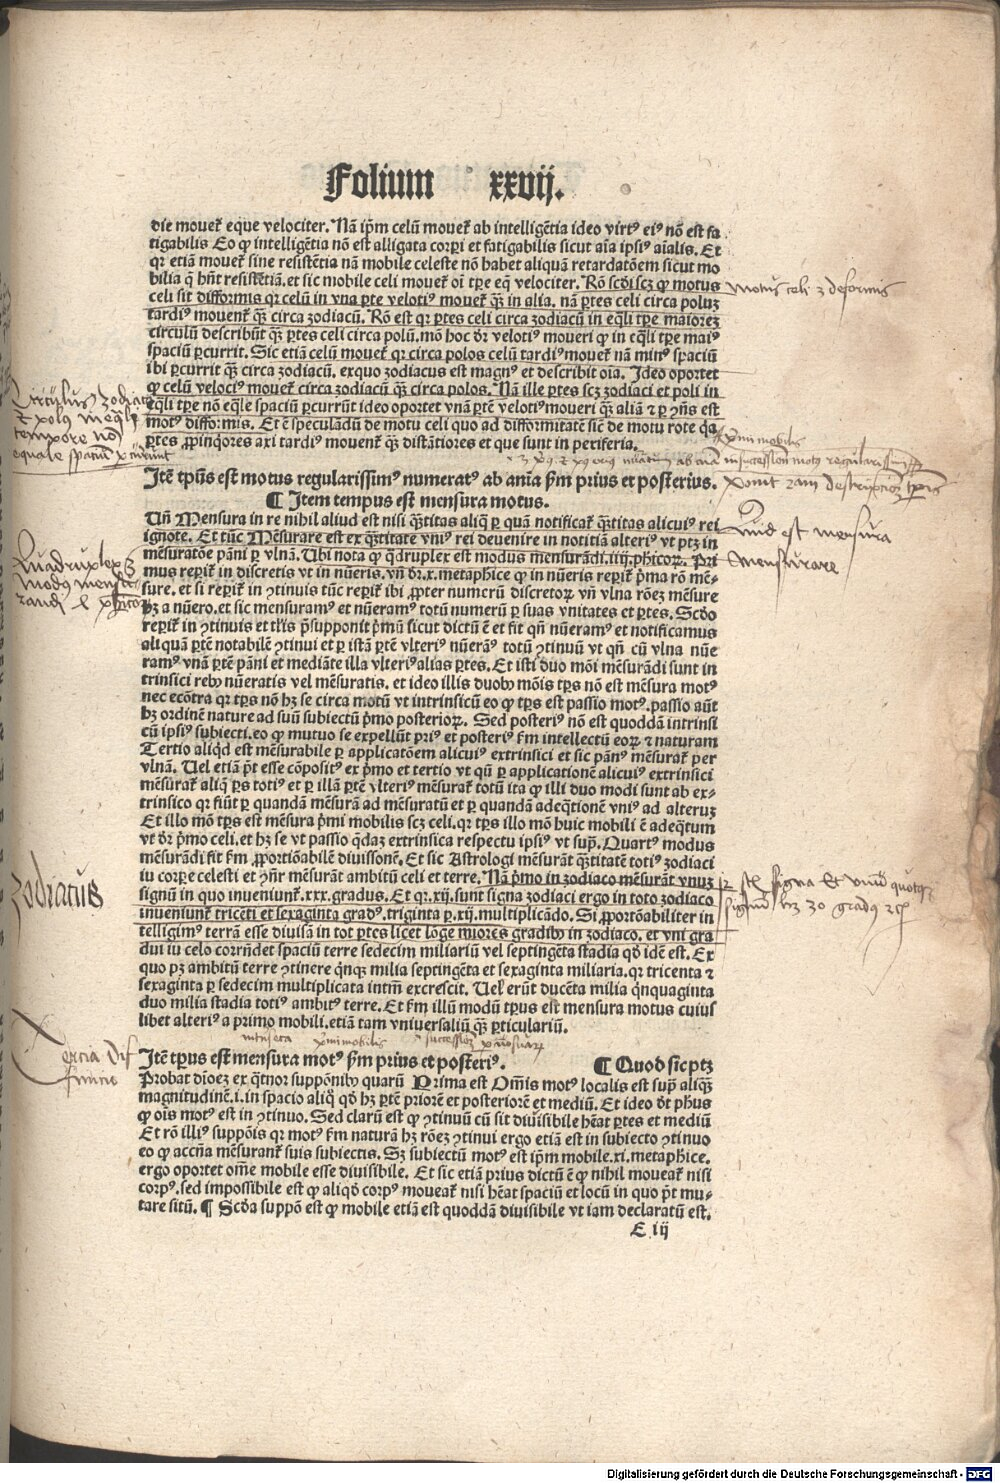 Folium xxvij.
die mouet̃ eque velociter. Nã ip̃m celũ mouet̃ ab intelligẽtia ideo virtꝰ eiꝰ nõ est fa
tigabilis Eo ꝙ intelligẽtia nõ est alligata corp̃i et fatigabilis sicut aĩa ipsiꝰ aĩalis. Et
qꝛ etiã mouet̃ sine resistẽtia nã mobile celeste nõ habet aliquã retardatõem sicut mo
bilia q̃ hñt resistẽtiã. et sic mobile celi mouet̃ oĩ tp̃e eq̃ velociter. Rõ scd̓i scꝫ ꝙ motus
celi sit difformis qꝛ celũ in vna p̱te velotiꝰ mouet̃ qꝫ̃ in alia. nã p̱tes celi circa poluꝫ
tardiꝰ mouent̃ qꝫ̃ circa zodiacũ. Rõ est qꝛ p̱tes celi circa zodiacũ in eq̃li tp̃e maioreꝫ
circulũ describũt qꝫ̃ p̱tes celi circa polũ. mõ hoc dr̃ velotiꝰ moueri ꝙ in eq̃li tp̃e maiꝰ
spaciũ p̱currit. Sic etiã celũ mouet̃ qꝛ circa polos celũ tardiꝰ mouet̃ nã minꝰ spaciũ
ibi p̱currit qꝫ̃ circa zodiacũ. exquo zodiacus est magnꝰ et describit oĩa. Ideo oportet
ꝙ celũ velociꝰ mouet̃ circa zodiacũ qꝫ̃ circa polos. Nã ille p̱tes scꝫ zodiaci et poli in
eq̃li tp̃e nõ eq̃le spaciũ p̱currũt ideo oportet vnã p̱tẽ velotiꝰ moueri qꝫ̃ aliã ⁊ p̱ ꝯñs est
motꝰ difformis. Et ẽ speculãdũ de motu celi quo ad difformitatẽ sic̃ de motu rote q̇a
p̱tes ꝓpinq̃ores axi tardiꝰ mouent̃ qꝫ̃ distãtiores et que sunt in periferia.
Itẽ tp̃us est motus regularissimꝰ numeratꝰ ab anĩa ẜm prius et posterius.
¶ Item tempus est mensura motus.
Uñ Mensura in re nihil aliud est nisi q̃titas aliq̃ p̱ quã notificat̃ q̃titas alicuiꝰ rei
ignote. Et tũc Mẽsurare est ex q̃titate vniꝰ rei deuenire in notitiã alteriꝰ vt ptꝫ in
mẽsuratõe pãni p̱ vlnã. Ubi nota ꝙ q̃druplex est modus mensurãdi .iiij. phicoꝝ. Pri
mus reperit̃ in discretis vt in nũeris. vñ dr̃ .x. metaphice ꝙ in nũeris reperit̃ p̃ma rõ mẽ⸗
sure. et si reperit̃ in ꝯtinuis tũc reperit̃ ibi ꝓpter numerũ discretoꝝ vñ vlna rõeꝫ mẽsure
hꝫ a nũero. et sic mensuramꝰ et nũeramꝰ totũ numerũ p̱ suas vnitates et p̱tes. Scd̓o
reperit̃ in ꝯtinuis et tñ p̃supponit p̃mũ sicut dictũ ẽ et fit qñ nũeramꝰ et notificamus
aliquã p̱tẽ notabilẽ ꝯtinui et p̱ istã p̱tẽ vlteriꝰ nũerãt totũ ꝯtinuũ vt qñ cũ vlna nũe
ramꝰ vnã p̱tẽ pãni et mediãte illa vlteriꝰ alias p̱tes. Et isti duo mõi mẽsurãdi sunt in
trinsici rebꝰ nũeratis vel mẽsuratis. et ideo illis duobꝰ mõis tp̃s nõ est mẽsura motꝰ
nec ecõtra qꝛ tp̃s nõ hꝫ se circa motũ vt intrinsicũ eo ꝙ tp̃s est passio motꝰ. passio aũt
hꝫ ordinẽ nature ad suũ subiectũ p̃mo posterioꝝ. Sed posteriꝰ nõ est quoddã intrinsi
cũ ipsiꝰ subiecti. eo ꝙ mutuo se expellũt priꝰ et posteriꝰ ẜm intellectũ eoꝝ ⁊ naturam
Tertio aliq̇d est mẽsurabile p̱ applicatõem alicuiꝰ extrinsici et sic pãnꝰ mẽsurat̃ per
vlnã. Uel etiã p̃t esse cõpositꝰ ex p̃mo et tertio vt qñ p̱ applicationẽ alicuiꝰ extrinsici
mẽsurat̃ aliq̃ p̱s totiꝰ et p̱ illã p̱tẽ vlteriꝰ mẽsurat̃ totũ ita ꝙ illi duo modi sunt ab ex⸗
trinsico qꝛ fiũt p̱ quandã mẽsurã ad mẽsuratũ et p̱ quandã adeq̃tionẽ vniꝰ ad alteruꝫ
Et illo mõ tp̃s est mẽsura p̃mi mobilis scꝫ celi. qꝛ tp̃s illo mõ huic mobili ẽ adeq̃tum
vt dr̃ p̃mo celi. et hꝫ se vt passio q̃daꝫ extrinsica respectu ipsiꝰ vt supͣ. Quartꝰ modus
mẽsurãdi fit ẜm ꝓportiõabilẽ diuissionẽ. Et sic Astrologi mẽsurãt q̃titatẽ totiꝰ zodiaci
iu corp̱e celesti et ꝯñr mẽsurãt ambitũ celi et terre. Nã p̃mo in zodiaco mẽsurãt vnuꝫ
signũ in quo inueniunt̃ .xxx. gradus. Et qꝛ .xij. sunt signa zodiaci ergo in toto zodiaco
inueniunt̃ tricẽti et sexaginta gradꝰ. triginta p̱ .xij. multiplicãdo. Si ꝓportõabiliter in
telligimꝰ terrã esse diuisã in tot p̱tes licet lõge miores gradibꝰ in zodiaco. et vni gra
dui iu celo corrñdet spaciũ terre sedecim miliariũ vel septingẽta stadia qd̓ idẽ est. Ex
quo pꝫ ambitũ terre ꝯtinere q̇nqꝫ milia septingẽta et sexaginta miliaria. qꝛ tricenta ⁊
sexaginta p̱ sedecim multiplicata intm̃ excrescit. Uel erũt ducẽta milia q̇nquaginta
duo milia stadia totiꝰ ambitꝰ terre. Et ẜm illũ modũ tp̃us est mensura motus cuius
libet alteriꝰ a primo mobili. etiã tam vniuersaliũ qꝫ̃ p̱ticulariũ.
Itẽ tp̃us est mensura motꝰ ẜm prius et posteriꝰ. ¶ Quod sic ptꝫ
Probat d̓icẽꝫ ex q̃tuor suppõnibꝰ quarũ Prima est Om̃is motꝰ localis est supͣ aliqꝫ̃
magnitudinẽ .i. in spacio aliq̃ qd̓ hꝫ p̱tẽ priorẽ et posteriorẽ et mediũ. Et ideo d̓t ph̃us
ꝙ oĩs motꝰ est in ꝯtinuo. Sed clarũ est ꝙ ꝯtinuũ cũ sit diuisibile hẽat p̱tes et mediũ
Et rõ illiꝰ suppõis qꝛ motꝰ ẜm naturã hꝫ rõeꝫ ꝯtinui ergo etiã est in subiecto ꝯtinuo
eo ꝙ accñtia mẽsurant̃ suis subiectis. Sꝫ subiectũ motꝰ est ip̃m mobile .xi. metaphice.
ergo oportet om̃e mobile esse diuisibile. Et sic etiã prius dictũ ẽ ꝙ nihil moueat̃ nisi
corpꝰ. sed impossibile est ꝙ aliqd̓ corpꝰ moueat̃ nisi hẽat spaciũ et locũ in quo p̃t mu⸗
tare sitũ. ¶ Scd̓a suppõ est ꝙ mobile etiã est quoddã diuisibile vt iam declaratũ est.
E iij
motus celi ⁊ deformis
Circulus zodiac
⁊ polus ineq̃li
tempore nõ
equale spatiũ p̱currunt
primi mobilis
Quid est mensura
Mensurare
Quadruplex ẽ
modus mensu
randi
zodiacus
signa Et vnũ quotqꝫ
signũ hꝫ 30 gradꝰ
Tercia dif
finicio
primi mobilis
Digitalisierung gefördert durch die Deutsche Forschungsgemeinschaft - DFG